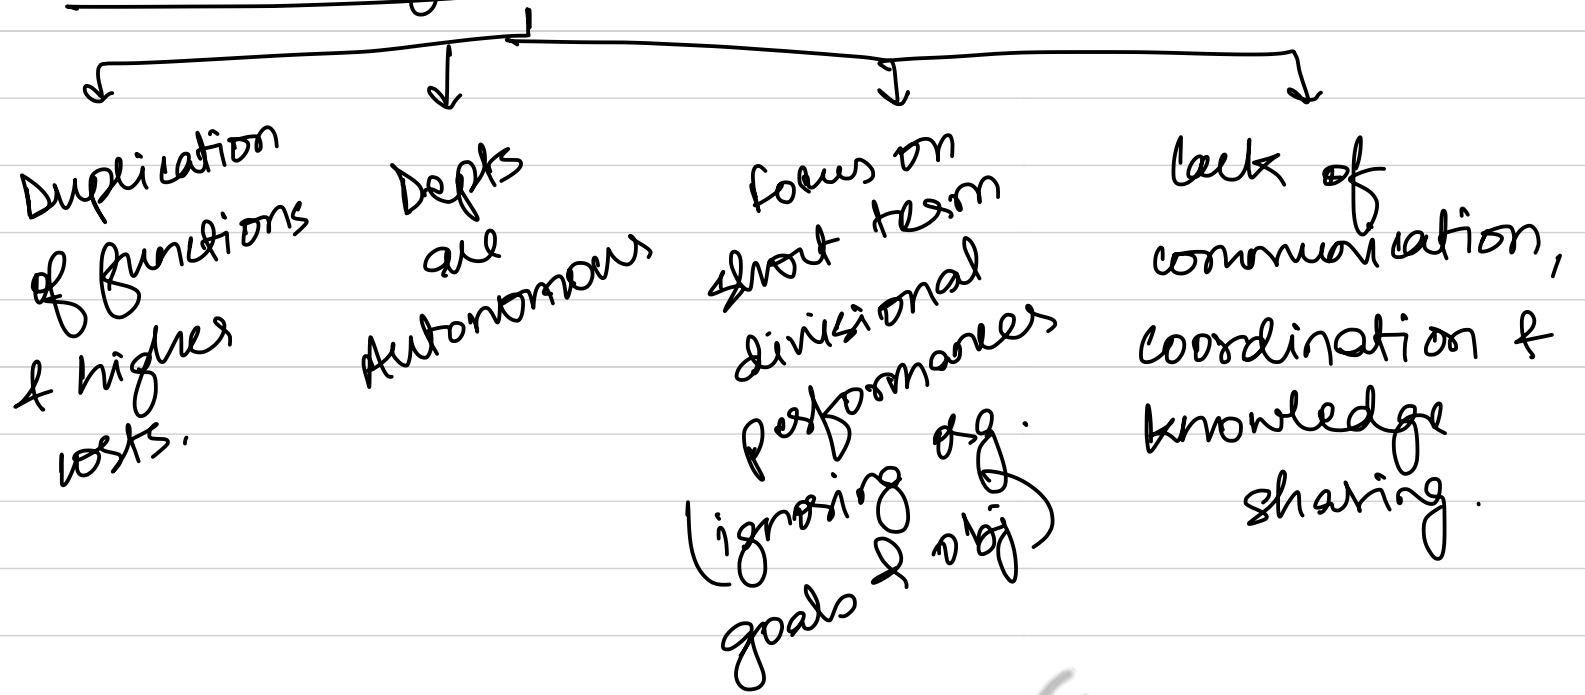 Duplication
of functions
& higher
costs.
Depts
are
Autonomous
focus on
short term
divisional
performances
(ignoring org.
goals & obj)
lack of
communication,
coordination &
knowledge
sharing.